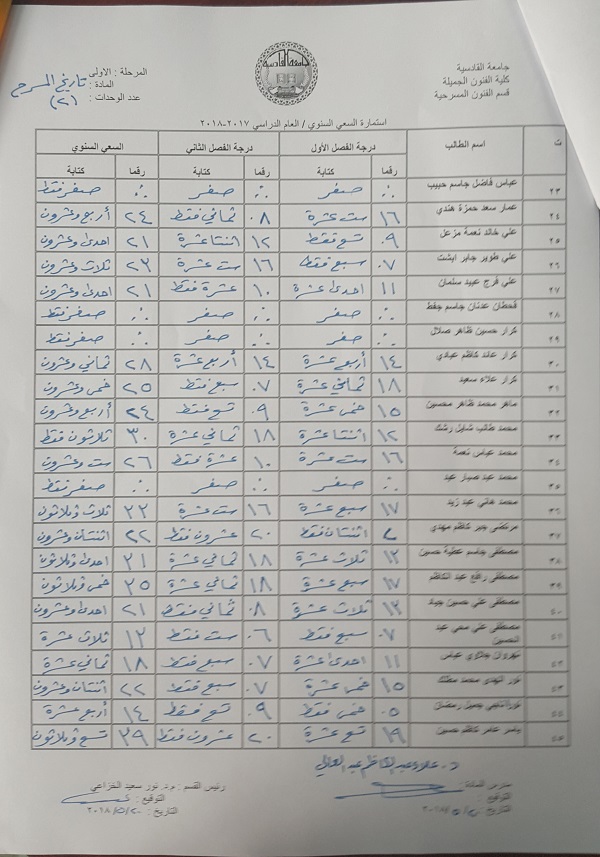 جامعة القادسية
كلية الفنون الجميلة
قسم الفنون المسرحية
جامعة القادسية
المرحلة : الاولى
المادة : تاريخ المسرح
عدد الوحدات : (٢)
استمارة السعي السنوي / العام الدراسي ٢٠١٧-٢٠١٨
ت اسم الطالب درجة الفصل الأول درجة الفصل الثاني السعي السنوي
رقما كتابة رقما كتابة رقما كتابة
٢٣ عباس فاضل جاسم حبيب ٠ صفر ٠ صفر ٠ صفر فقط
٢٤ عمار سعد حمزة هندي ١٦ ست عشرة ٠٨ ثماني فقط ٢٤ أربع وعشرون
٢٥ علي خالد نعمة مزعل ٠٩ تسع فقط ١٢ اثنتا عشرة ٢١ احدى وعشرون
٢٦ علي طوير جابر ٠٧ سبع فقط ١٦ ست عشرة ٢٣ ثلاث وعشرون
٢٧ علي فرج عبيد سلمان ١١ احدى عشرة ١٠ عشرة فقط ٢١ احدى وعشرون
٢٨ قحطان عدنان جاسم ٠ صفر ٠ صفر ٠ صفر فقط
٢٩ كرار حسين ظاهر ٠ صفر ٠ صفر ٠ صفر فقط
٣٠ كرار كاظم عبادي ١٤ أربع عشرة ١٤ أربع عشرة ٢٨ ثماني وعشرون
٣١ كرار علاء سعيد ١٨ ثماني عشرة ٠٧ سبع فقط ٢٥ خمس وعشرون
٣٢ ماهر محمد ظاهر محيسن ١٥ خمس عشرة ٠٩ تسع فقط ٢٤ أربع وعشرون
٣٣ محمد طالب ١٢ اثنتا عشرة ١٨ ثماني عشرة ٣٠ ثلاثون فقط
٣٤ محمد عباس نعمة ١٦ ست عشرة ١٠ عشرة فقط ٢٦ ست وعشرون
٣٥ محمد عبد عبد ٠ صفر ٠ صفر ٠ صفر فقط
٣٦ محمد عبد زيد ١٧ سبع عشرة ١٦ ست عشرة ٣٣ ثلاث وثلاثون
٣٧ كاظم مهدي ٢ اثنتان فقط ٢٠ عشرون فقط ٢٢ اثنتان وعشرون
٣٨ مصطفى جاسم حسين ١٣ ثلاث عشرة ١٨ ثماني عشرة ٣١ احدى وثلاثون
٣٩ مصطفى عبد الكاظم ١٧ سبع عشرة ١٨ ثماني عشرة ٣٥ خمس وثلاثون
٤٠ مصطفى علي حسين ١٣ ثلاث عشرة ٠٨ ثماني فقط ٢١ احدى وعشرون
٤١ مصطفى علي عبد الحسين ٠٧ سبع فقط ٠٦ ست فقط ١٣ ثلاث عشرة
٤٢ عباس ١١ احدى عشرة ٠٧ سبع فقط ١٨ ثماني عشرة
٤٣ نور محمد ١٥ خمس عشرة ٠٧ سبع فقط ٢٢ اثنتان وعشرون
٤٤ ٠٥ خمس فقط ٠٩ تسع فقط ١٤ أربع عشرة
٤٥ ياسر عامر كاظم حسين ١٩ تسع عشرة ٢٠ عشرون فقط ٣٩ تسع وثلاثون
د. علاء عبد الكاظم عبد العالي
مدرس المادة : رئيس القسم : م.د. نور سعيد الخزاعي
التوقيع : التوقيع :
التاريخ : التاريخ : ٢٠١٨/٥/٢٠